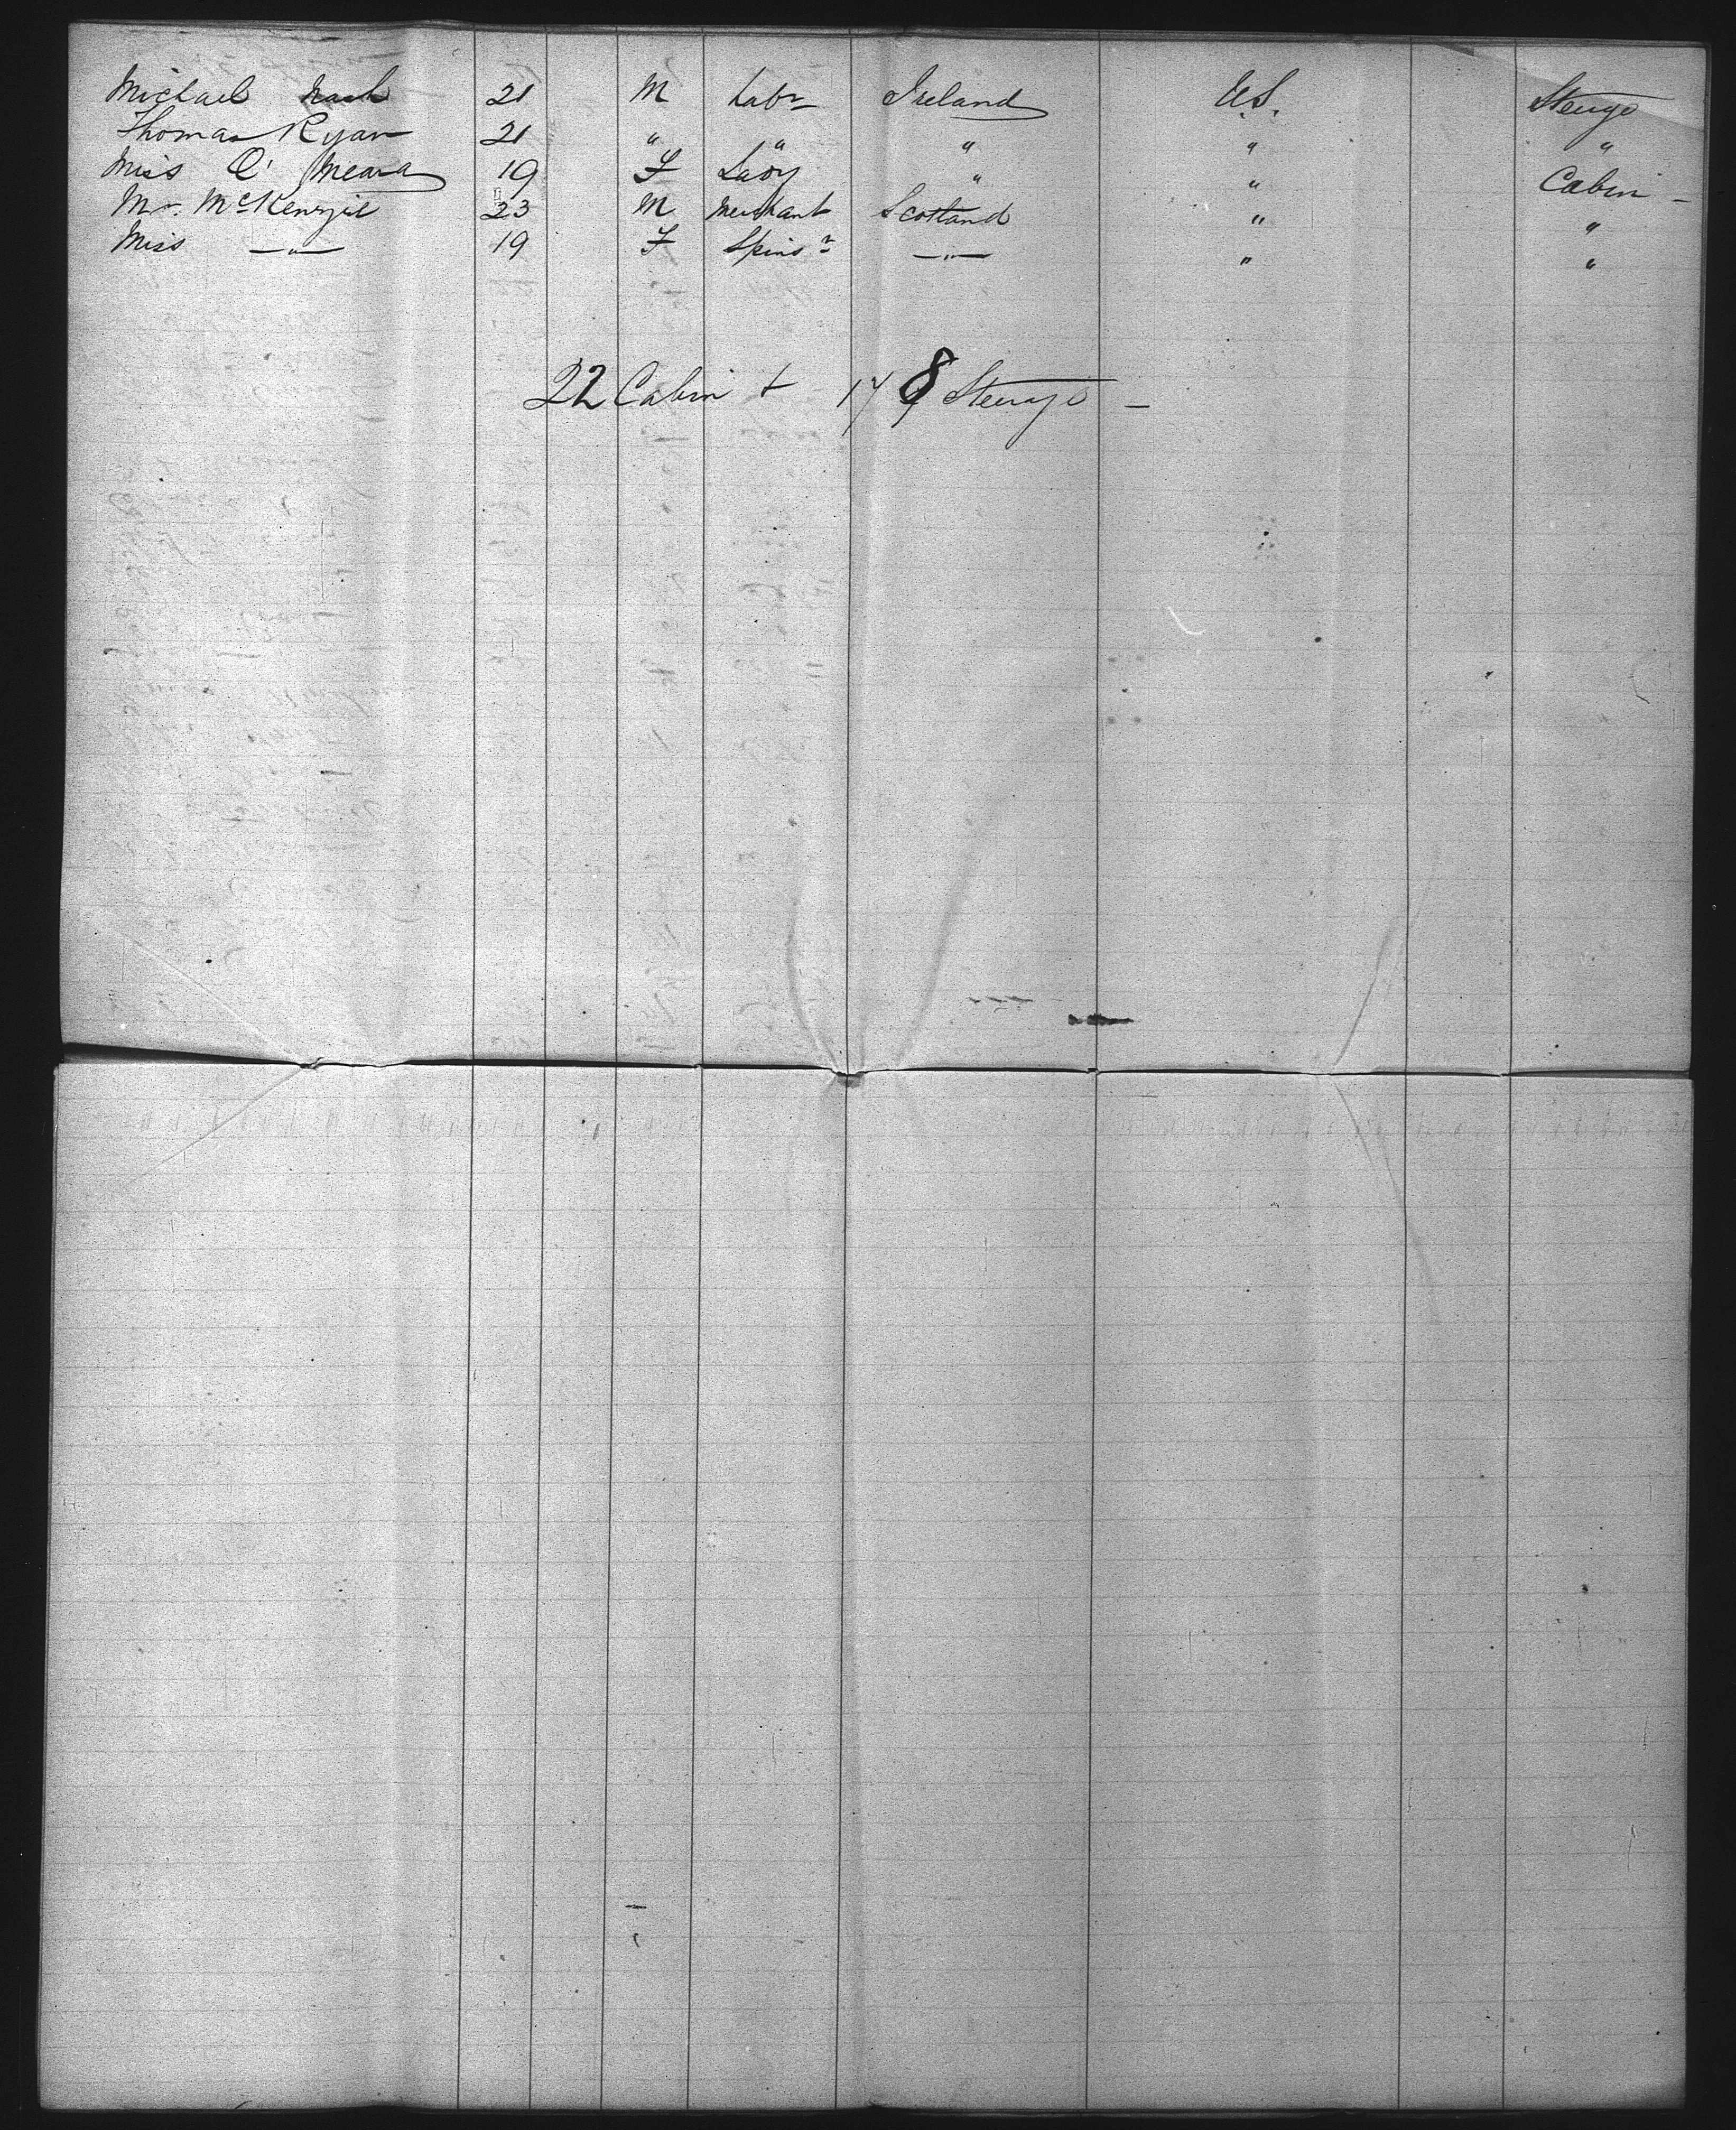 Michael Nash 21 M Labr Ireland U.S. Steerge
Thomas Ryan 21 " " " " "
Miss O' Meara 19 F Lady " " Cabin -
Mr. McKenzie 23 M Merchant Scotland " "
Miss —"— 19 F Spinsr —"— " "
22 Cabin + 178 Steerage -